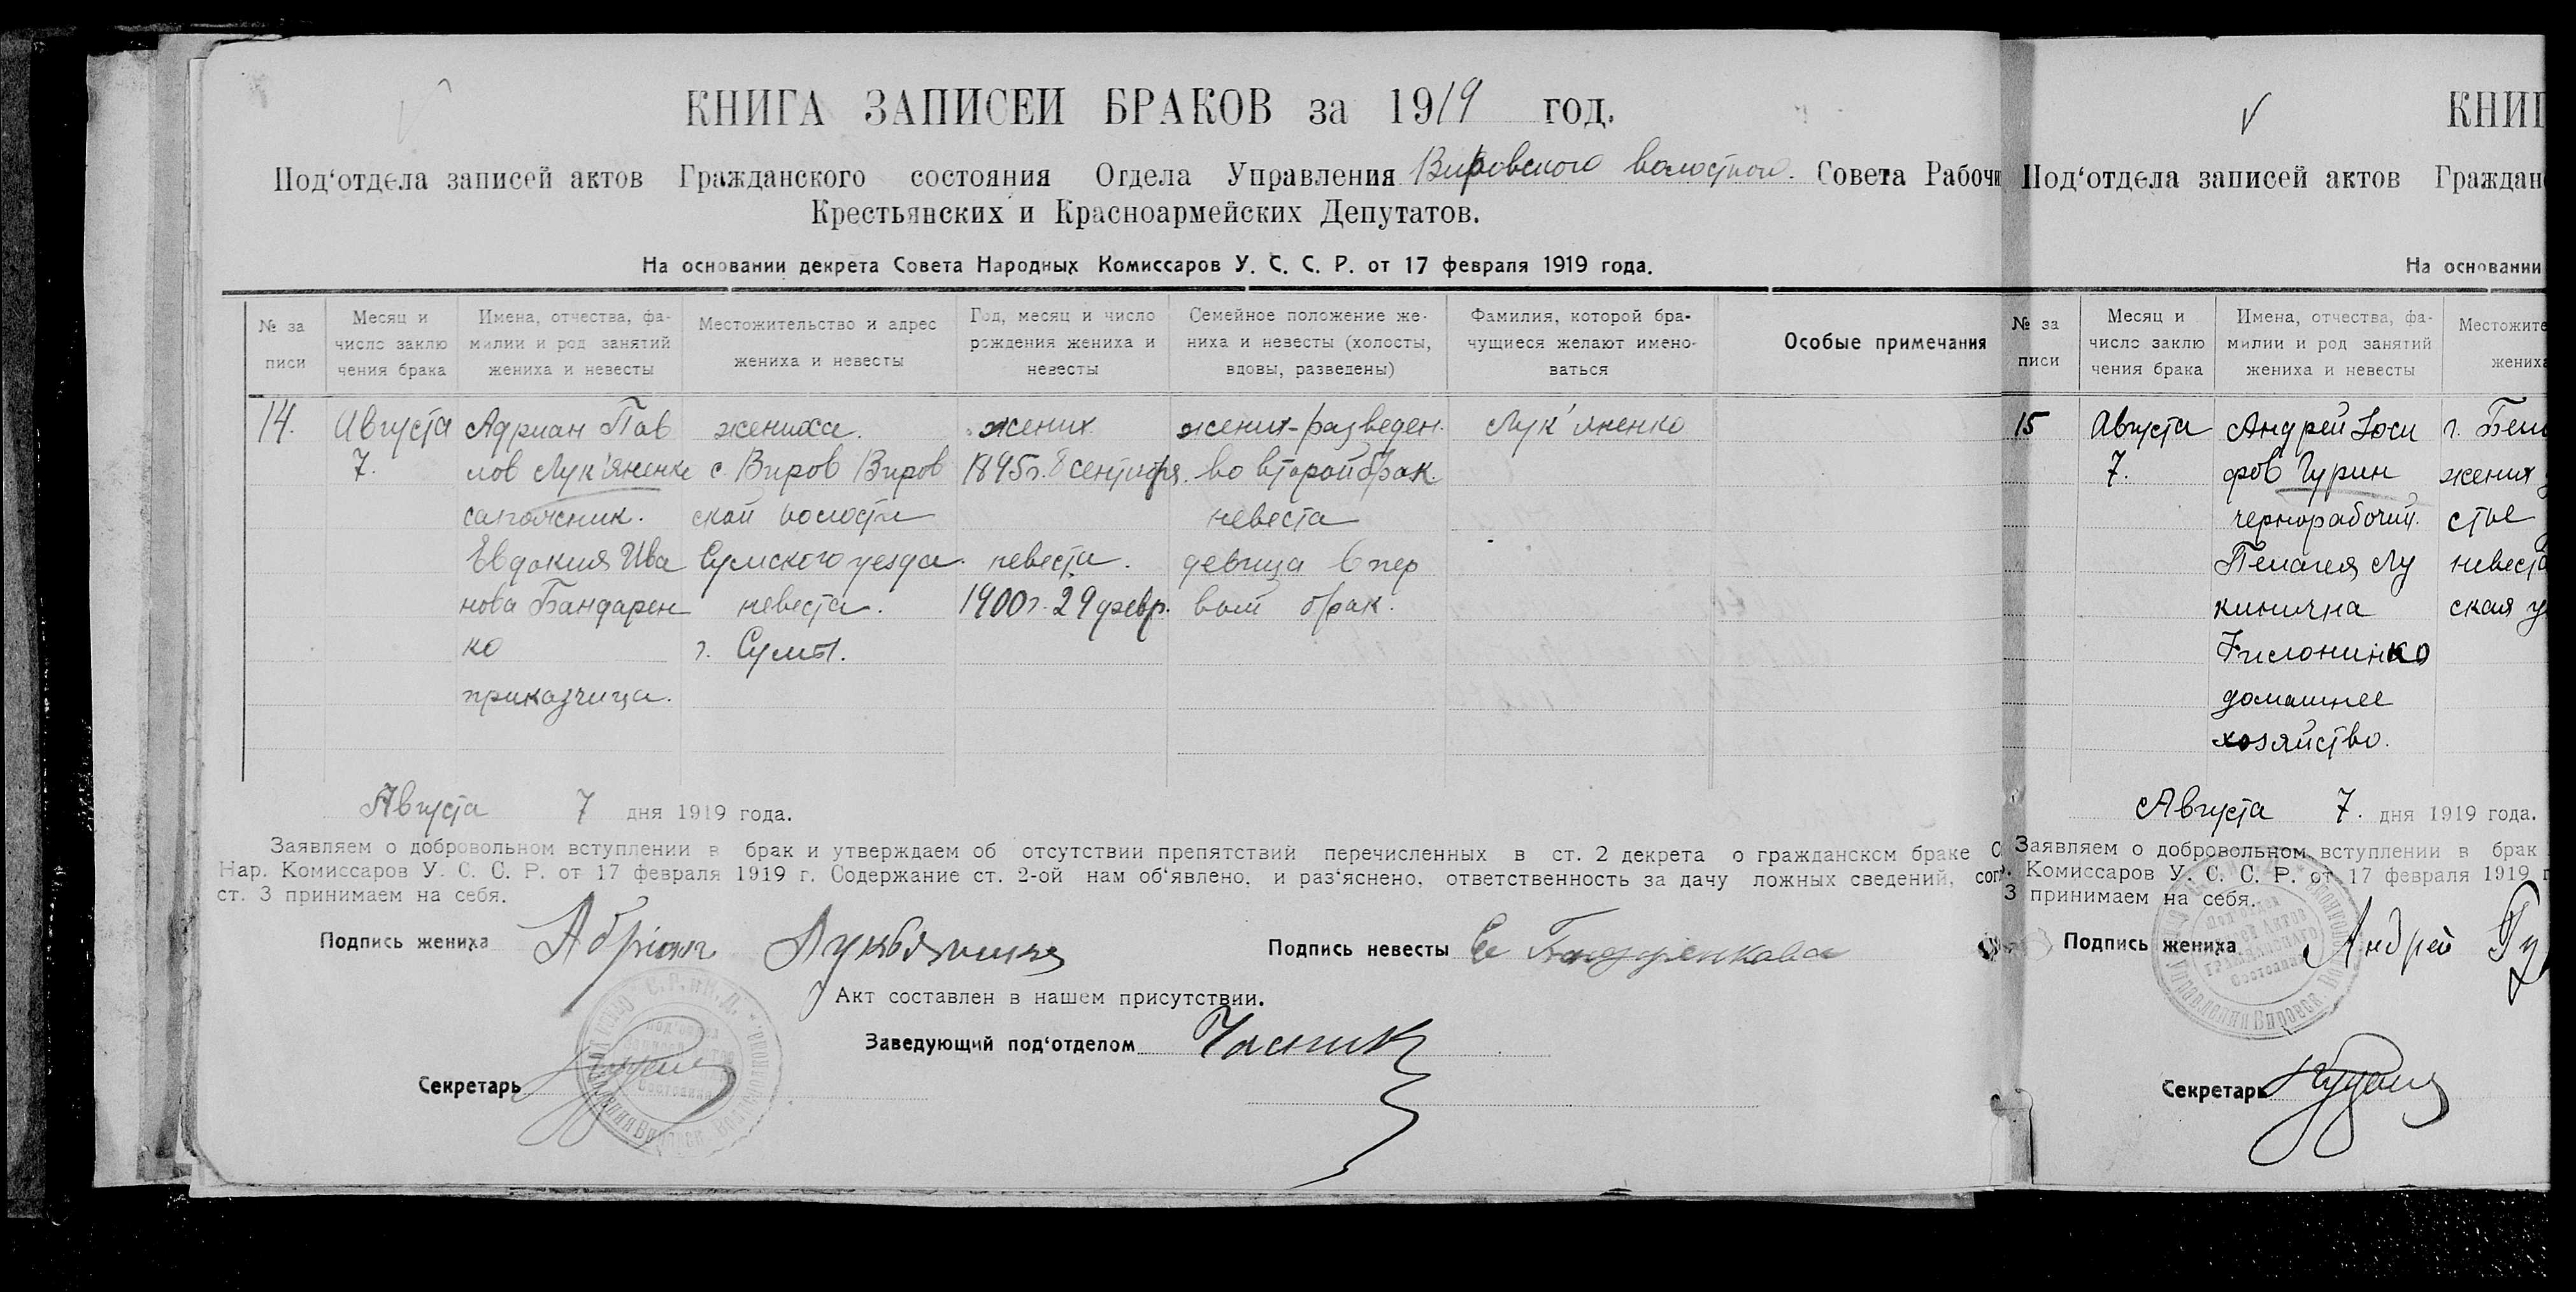 КНИГА ЗАПИСЕИ БРАКОВ за 1919 год.
Под‘отдела записей актов Гражданского состояния Отдела Управления Вировского волостного. Совета Рабочи
Крестьянских и Красноармейских Депутатов.
На основании декрета Совета Народных Комиссаров У. С. С. Р. от 17 февраля 1919 года.
№ за
писи
Месяц и
число заклю
чения брака
Имена, отчества, фа-
милии и род занятий
жениха и невесты
Местожительство и адрес
жениха и невесты
Год, месяц и число
рождения жениха и
невесты
Семейное положение же-
ниха и невесты (холосты,
вдовы, разведены)
Фамилия, которой бра-
чущиеся желают имено-
ваться
Особые примечания
14.
Августа
7.
Адриан Пав
лов Лук'яненко
сапожник.
Евдокия Ива
нова Бандарен
ко
приказчица.
жениха.
с. Виров Виров
ской волости
Сумского уезда.
невеста.
г. Сумы.
жених
1895г. 8 сентября.
невеста.
1900г. 29 февр.
жених-разведен.
во второй брак.
невеста
девица в пер
вый брак.
Лук'яненко
Августа 7 дня 1919 года.
Заявляем о добровольном вступлении в брак и утверждаем об отсутствии препятствий перечисленных в ст. 2 декрета о гражданском браке С
Нар. Комиссаров У. С. С. Р. от 17 февраля 1919 г. Содержание ст. 2-ой нам об‘явлено, и раз‘яснено, ответственность за дачу ложных сведений, согл
ст. 3 принимаем на себя.
Подпись жениха
Подпись невесты
Акт составлен в нашем присутствии.
Заведующий под‘отделом
Секретарь
КНИГ
Под‘отдела записей актов Граждан
На основании
№ за
писи
Месяц и
число заклю
чения брака
Имена, отчества, фа-
милии и род занятий
жениха и невесты
Местожите
жениха
15
Августа
7.
Андрей Iоси
фов Гурин
чернорабочий.
Пелагея Лу
кинична
домашнее
хозяйство.
жених
невеста
ская у
Августа 7. дня 1919 года.
Заявляем о добровольном вступлении в брак
. Комиссаров У. С. С. Р. от 17 февраля 1919 г
3 принимаем на себя.
Подпись жениха Андрей Гу
Секретарь